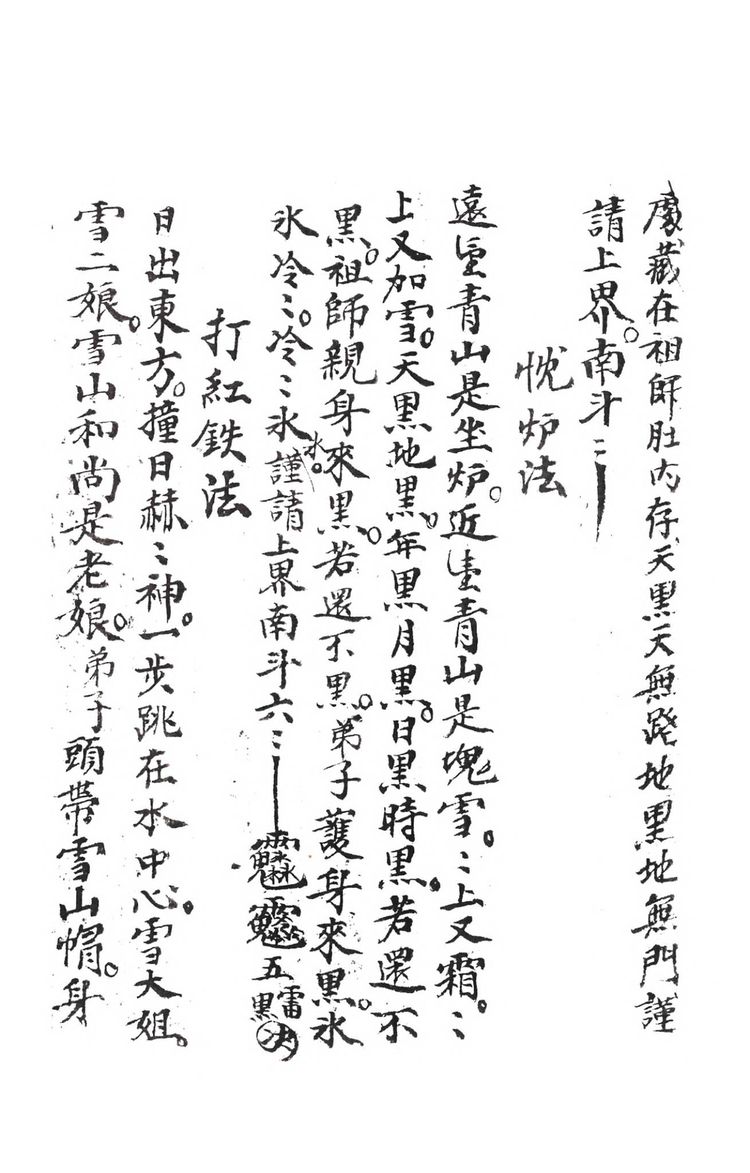 藏在祖師肚內存天黑天無路地黑地無門謹
請上界。南斗〻
炉法
遠望青山是坐炉。近望青山是塊雪。〻上又霜。〻
上又加雪。天黑地黑。年黑月黑。日黑時黑。若還不
黑。祖師親身來黑。若還不黑。弟子護身來黑。氷
氷冷〻。冷〻氷水。謹請上界南斗六〻 五雷黑
打紅鉄法
日出東方。撞日赫〻神。一步跳在水中心。雪大姐。
雪二娘。雪山和尚是老娘。弟子頭帶雪山帽。身